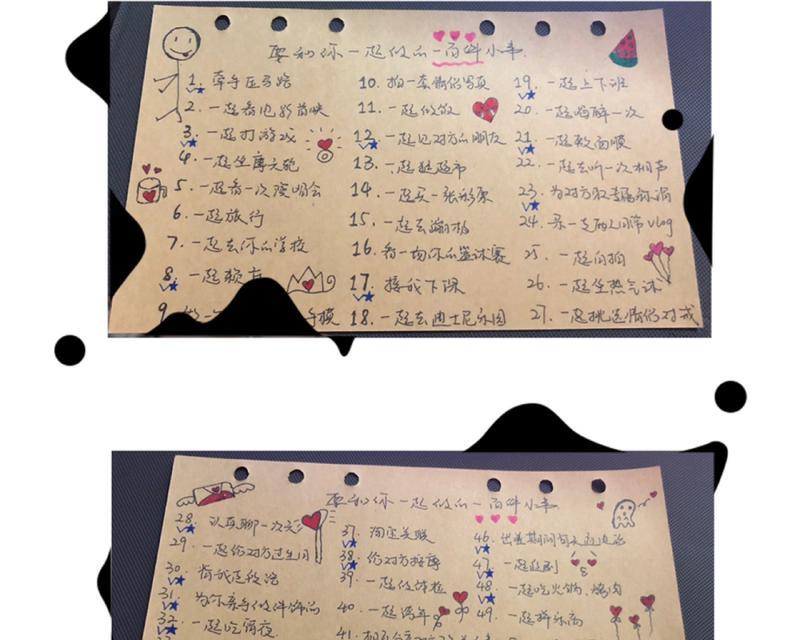 要和你一起做的一百件小事.
1. 牵手压马路
2. 一起看电影首映
3. 一起打游戏
4. 一起坐摩天轮
5. 一起看一次演唱会
6. 一起旅行
7. 一起去你的学校
8. 一起赖床
9. 手模
10. 拍一套情侣写真
11. 一起做饭
12. 一起见对方的朋友
13. 一起逛超市
14. 一起买一张彩票
15. 一起去蹦极
16. 看一场你的篮球赛
17. 接我下课
18. 一起去迪士尼乐园
19. 一起上下班
20. 一起喝醉一次
21. 一起敷面膜
22. 一起去听一次相声
23. 为对方取专属称谓
24. 录一支两人日常vlog
25. 一起自拍
26. 一起坐热气球
27. 一起挑选情侣对戒
要和你一起做的一百件小事
28. 认真聊一次天
29. 一起给对方过生日
30. 带我逛夜
31. 为你亲手做件饰品
32. 一起吃宵夜
37. 淘宝关联
38. 给对方按摩
39. 一起做体检
40. 一起跨年
41.
46. 出差期间每天通电话
47. 一起追剧
48. 一起吃火锅、烤肉
49. 一起拼乐高